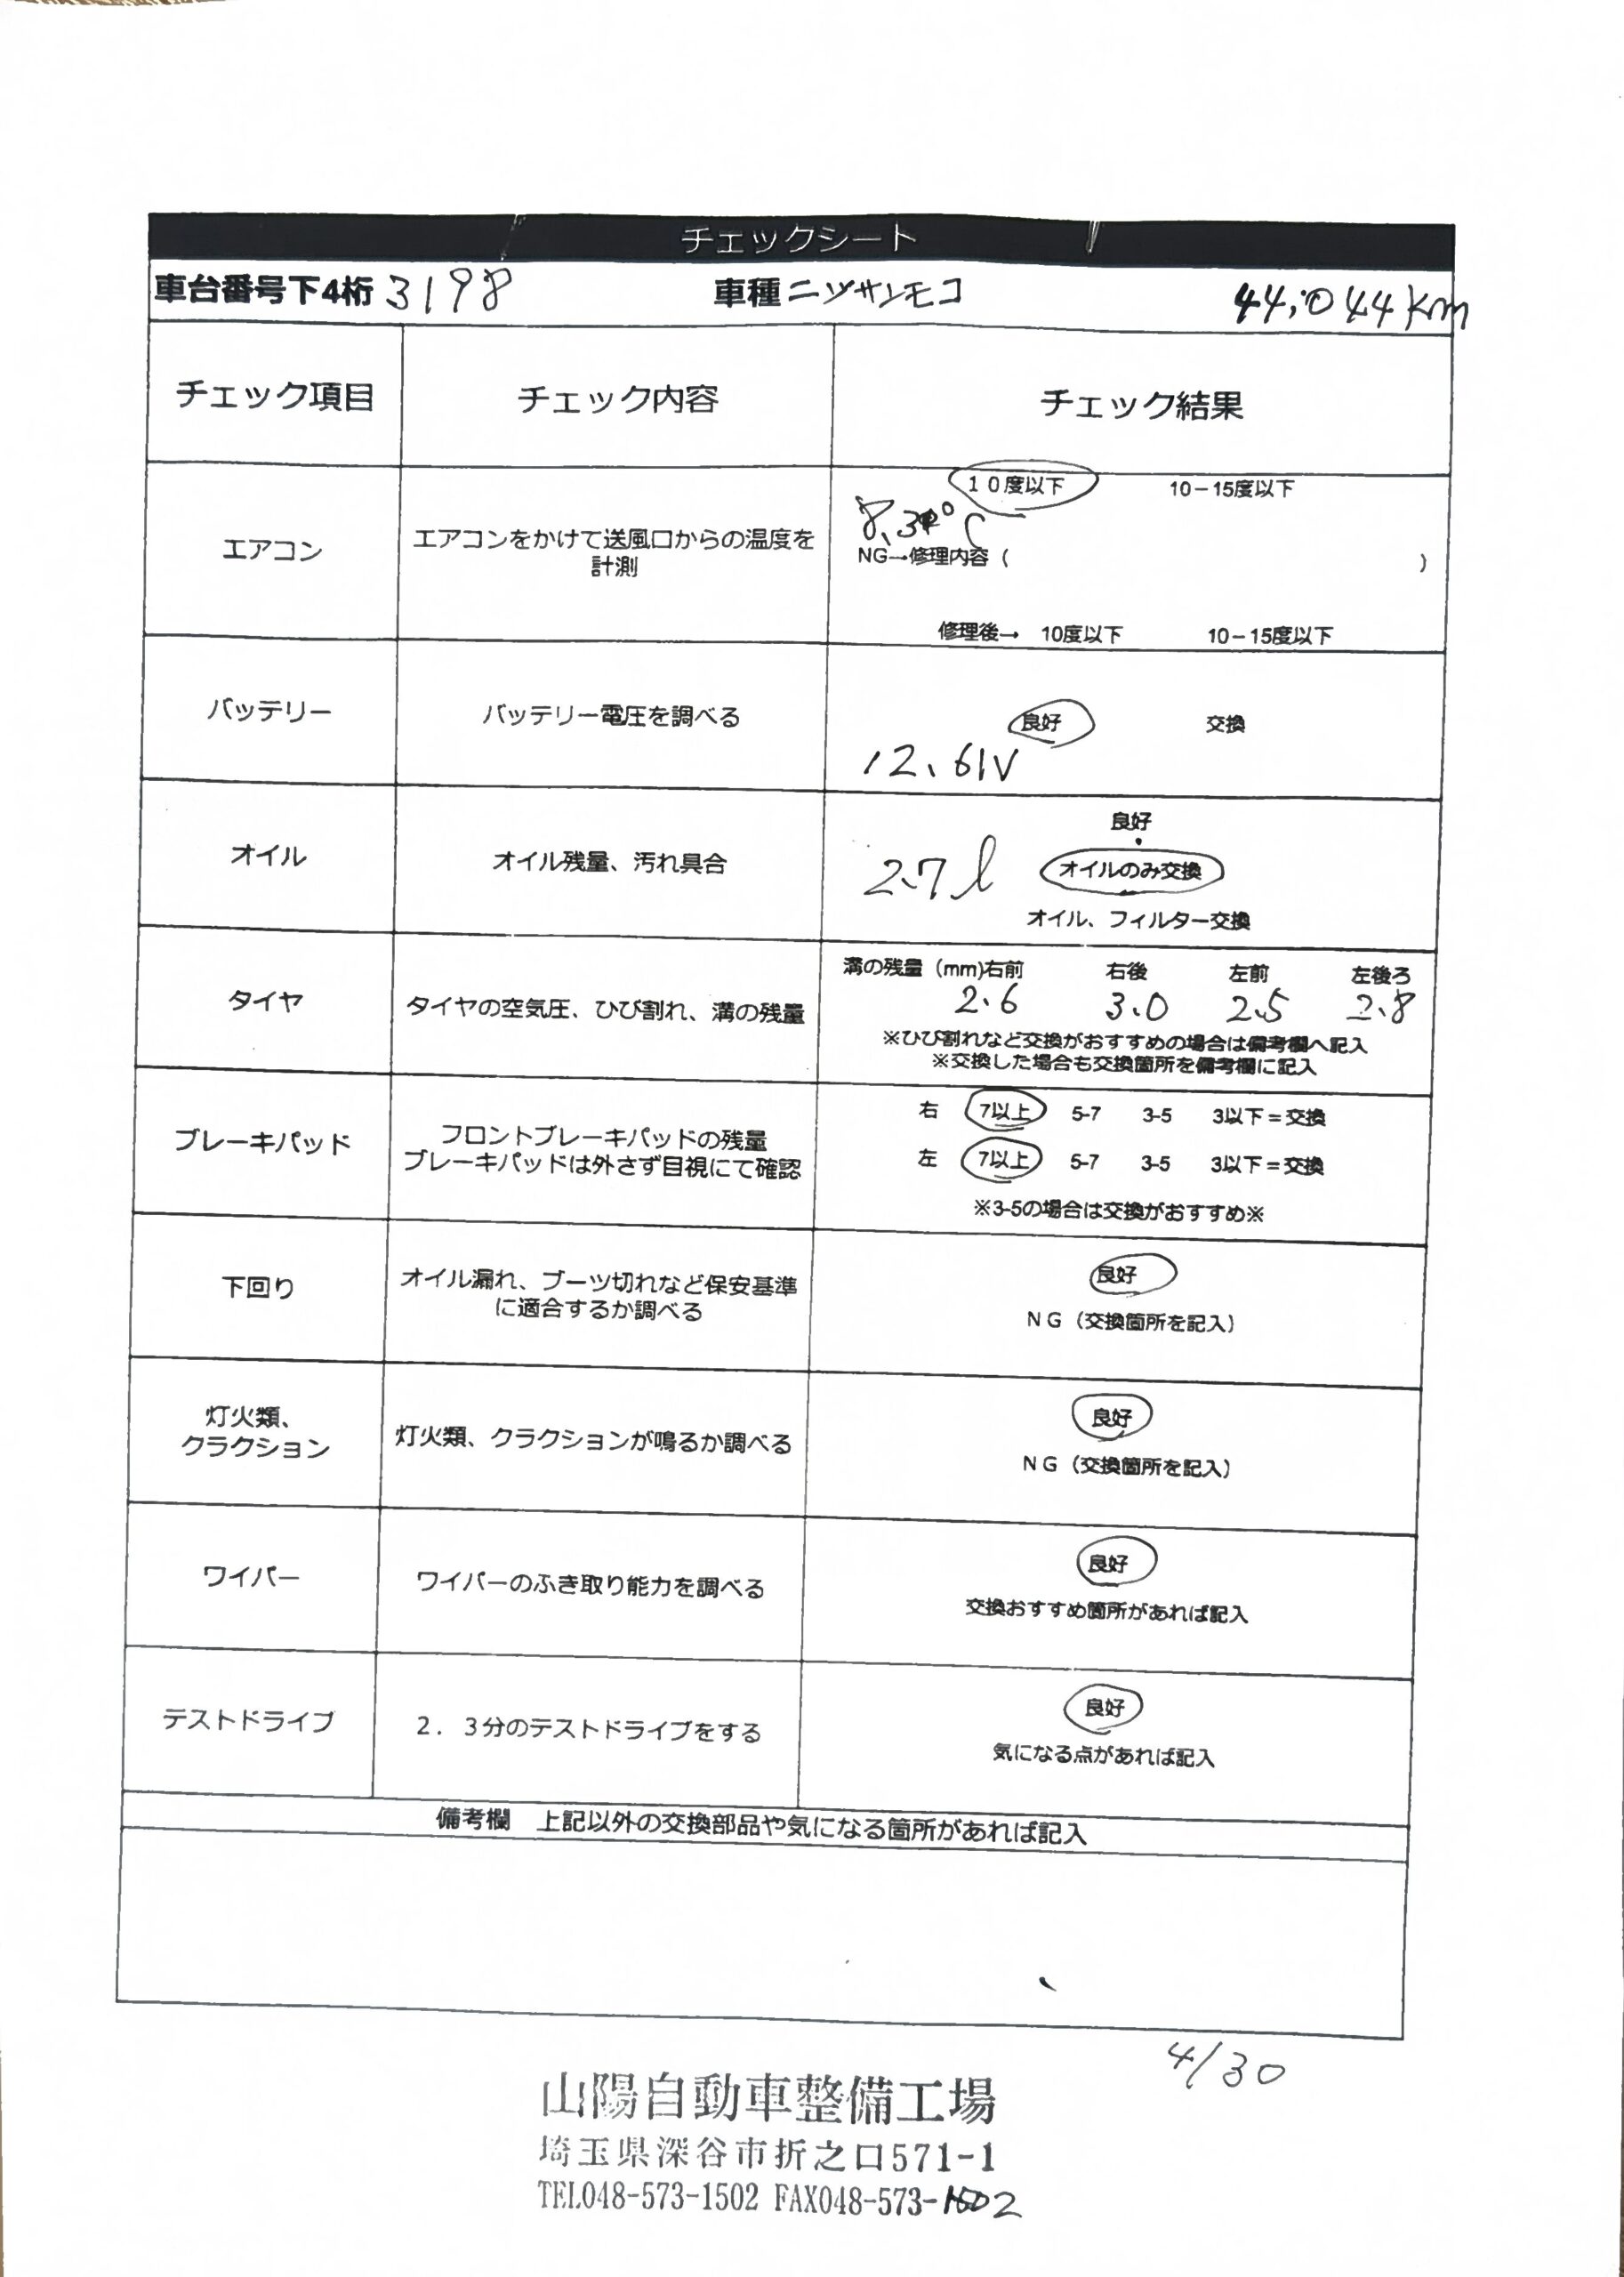 チェックシート
車台番号下4桁 3198 車種 ニッサンモコ 44,044km
チェック項目 チェック内容 チェック結果
エアコン
エアコンをかけて送風口からの温度を
計測
10度以下 10-15度以下
NG→修理内容 ( )
修理後→ 10度以下 10-15度以下
バッテリー
バッテリー電圧を調べる
良好 交換
12.61V
オイル
オイル残量、汚れ具合
良好
2.7l オイルのみ交換
オイル、フィルター交換
タイヤ
タイヤの空気圧、ひび割れ、溝の残量
溝の残量 (mm)右前 右後 左前 左後ろ
2.6 3.0 2.5 2.8
※ひび割れなど交換がおすすめの場合は備考欄へ記入
※交換した場合も交換箇所を備考欄に記入
ブレーキパッド
フロントブレーキパッドの残量
ブレーキパッドは外さず目視にて確認
右 7以上 5-7 3-5 3以下=交換
左 7以上 5-7 3-5 3以下=交換
※3-5の場合は交換がおすすめ※
下回り
オイル漏れ、ブーツ切れなど保安基準
に適合するか調べる
良好
NG (交換箇所を記入)
灯火類、
クラクション
灯火類、クラクションが鳴るか調べる
良好
NG (交換箇所を記入)
ワイパー
ワイパーのふき取り能力を調べる
良好
交換おすすめ箇所があれば記入
テストドライブ
2．3分のテストドライブをする
良好
気になる点があれば記入
備考欄 上記以外の交換部品や気になる箇所があれば記入
4/30
山陽自動車整備工場
埼玉県深谷市折之口571-1
TEL048-573-1502 FAX048-573-1502